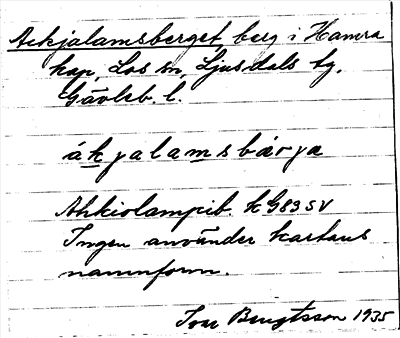 Ackjalamsberget, berg i Hamra
kap, Los sn, Ljusdals tg,
Gävleb. l.
ákjalamsbárja
Ahkiolampib. kG83SV
Ingen använder kartans
namnform.
Ivar Bengtsson 1935